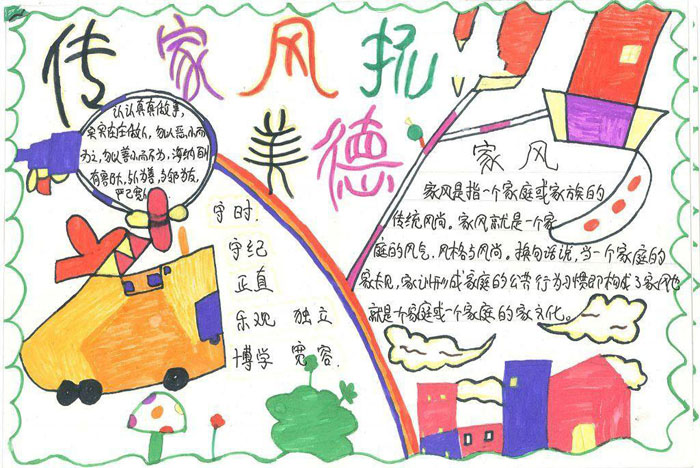 传家风扬
美德
认认真真做事,
实实在在做人,勿以恶小而
为之,勿以善小而不为,海纳百川
有容乃大,与人为善,与邻为友,
严己宽人
守时.
守纪
正直
乐观 独立
博学 宽容
家风
家风是指一个家庭或家族的
传统风尚。家风就是一个家
庭的风气、风格与风尚。换句话说,当一个家庭的
家训形成家庭的公共行为习惯即构成了家风也
就是个家庭或一个家庭的家文化。